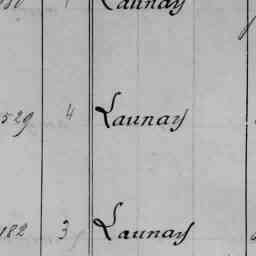 Launay
529 4 Launay
182 3 Launay